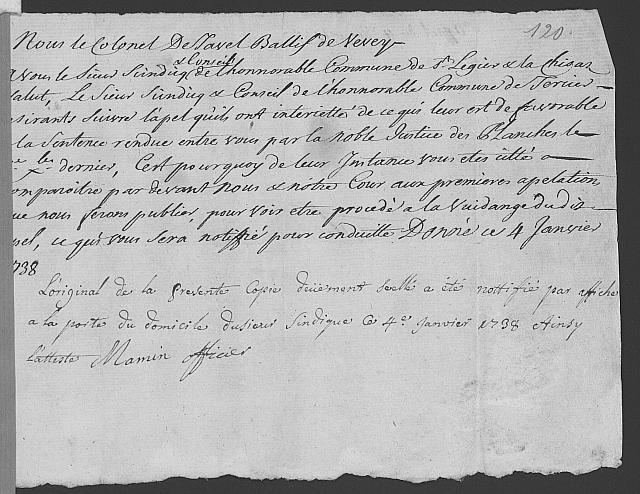 120.
Nous le Colonel De Tavel Ballif de Vevey
& Conseil
A vous le Sieur Sindicq de Lhonnorable Commune de St. Legier & la Chiesaz
salut, Le Sieur Sindicq & Conseil de Lhonnorable Commune de
sirants suivre lapel quils ont interietté de ce qui leur est defavorable
a la Sentence rendue entre vous par la noble Justice des Planches le
dernier, Cest pourquoy de leur Instance vous etes citté a
omparoitre par devant nous & nôtre Cour aux premieres apelation
que nous ferons publier, pour voir etre procédé a la Vuidange dudis
pel, ce qui vous sera notiffié pour conduitte Donné ce 4 Janvier
1738
L'original de la presente Copie duement seellé a été nottifié par affiche
a la porte du domicile dusieur Sindique Ce 4e. Janvier 1738 Ainsy
l'atteste Mamin officier